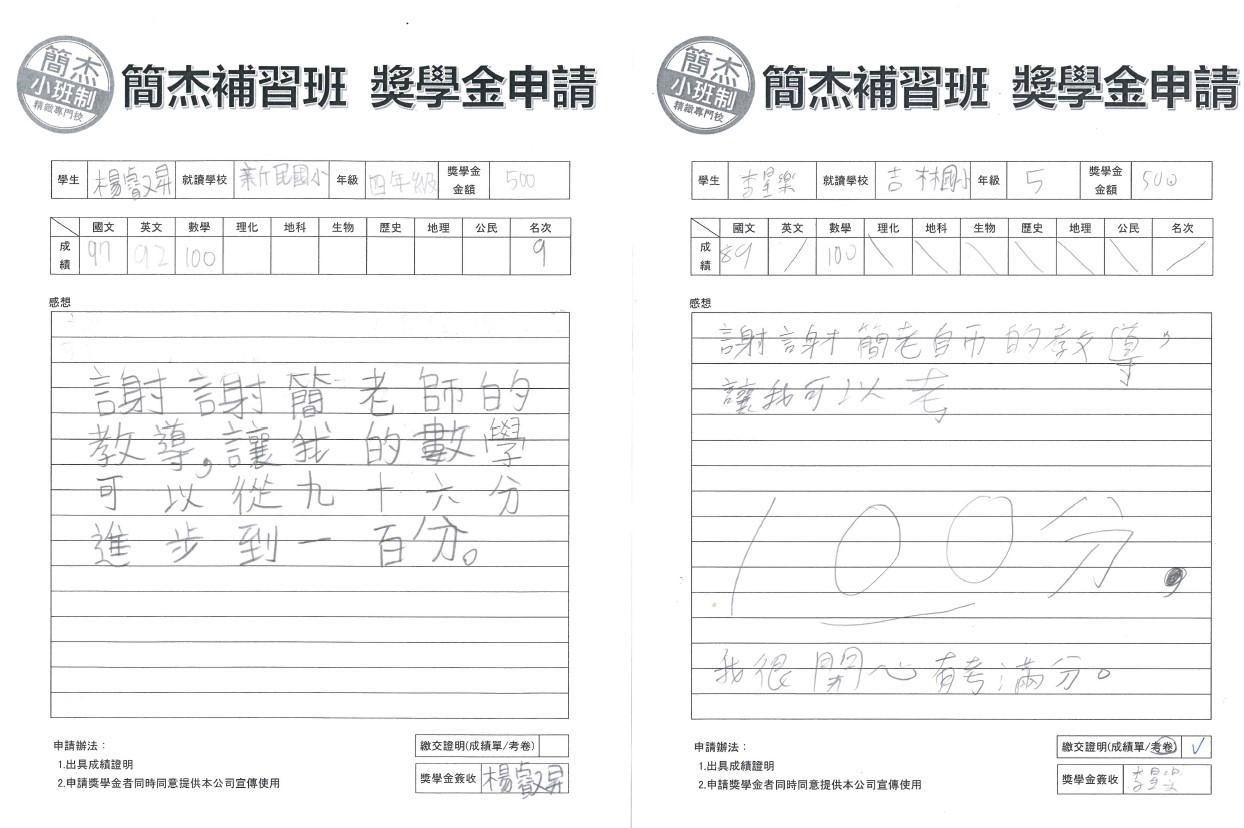 簡杰
小班制
精緻專門校
簡杰補習班 獎學金申請
學生 楊睿又昇 就讀學校 新民國小 年級 四年級 獎學金金額 500
國文 英文 數學 理化 地科 生物 歷史 地理 公民 名次
成績 97 92 100 9
感想
謝謝簡老師的
教導,讓我的數學
可以從九十六分
進步到一百分。
申請辦法：
1.出具成績證明
2.申請獎學金者同時同意提供本公司宣傳使用
繳交證明(成績單/考卷)
獎學金簽收 楊睿又昇
簡杰
小班制
精緻專門校
簡杰補習班 獎學金申請
學生 李星樂 就讀學校 吉林國小 年級 5 獎學金金額 500
國文 英文 數學 理化 地科 生物 歷史 地理 公民 名次
成績 89 / 100 \ \ \ \ \ \ /
感想
謝謝簡老師的教導,
讓我可以考
100分,
我很開心有考滿分。
申請辦法：
1.出具成績證明
2.申請獎學金者同時同意提供本公司宣傳使用
繳交證明(成績單/考卷) ✓
獎學金簽收